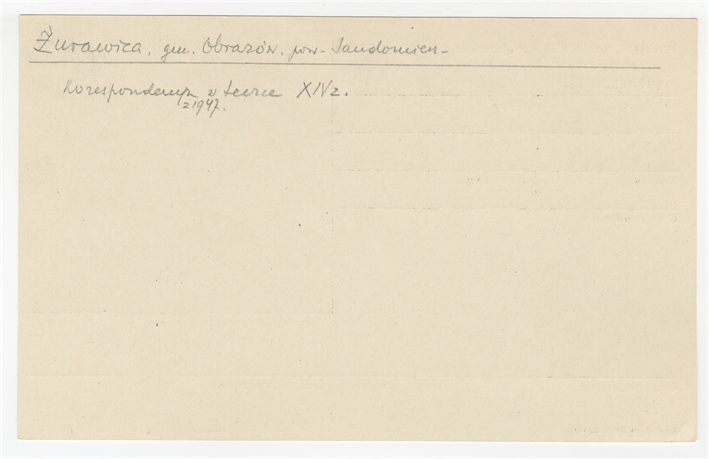 Żurawica, gm. Obrazów. pow. Sandomierz
Korespondencja w teczce XIV2.
z 1947.